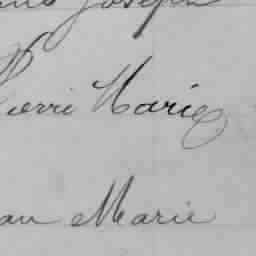 Joseph
Pierre Marie
an Marie